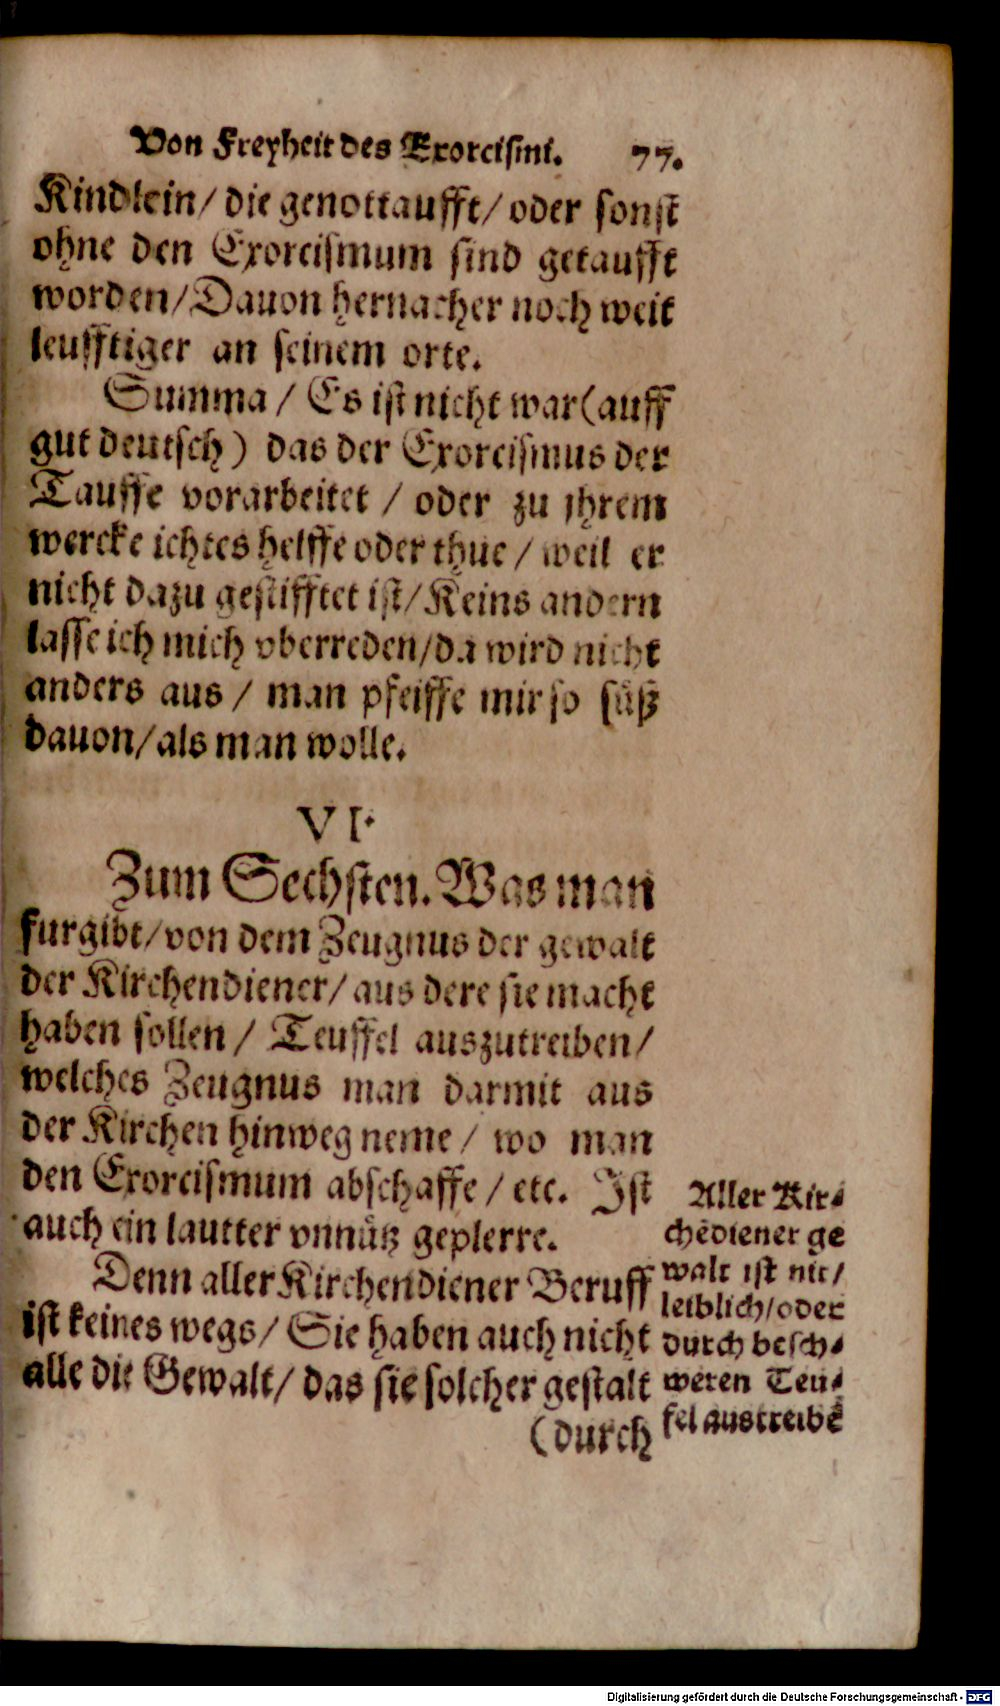 Von Freyheit des Exorcismi. 77.
Kindlein/ die genottaufft/ oder sonst
ohne den Exorcismum sind getaufft
worden/ Dauon hernacher noch weit
leufftiger an seinem orte.
Summa / Es ist nicht war (auff
gut deutsch) das der Exorcismus der
Tauffe vorarbeitet / oder zu jhrem
wercke ichtes helffe oder thue / weil er
nicht dazu gestifftet ist/ Keins andern
lasse ich mich vberreden/ da wird nicht
anders aus / man pfeiffe mir so süß
dauon/ als man wolle.
VI.
Zum Sechsten. Was man
furgibt/ von dem Zeugnus der gewalt
der Kirchendiener/ aus dere sie macht
haben sollen / Teuffel auszutreiben/
welches Zeugnus man darmit aus
der Kirchen hinweg neme / wo man
den Exorcismum abschaffe / etc. Ist
auch ein lautter vnnütz geplerre.
Denn aller Kirchendiener Beruff
ist keines wegs/ Sie haben auch nicht
alle die Gewalt/ das sie solcher gestalt
(durch
Aller Kir-
chēdiener ge
walt ist nit/
leiblich/ oder
durch besch-
weren Teu-
fel austreibē
Digitalisierung gefördert durch die Deutsche Forschungsgemeinschaft - DFG